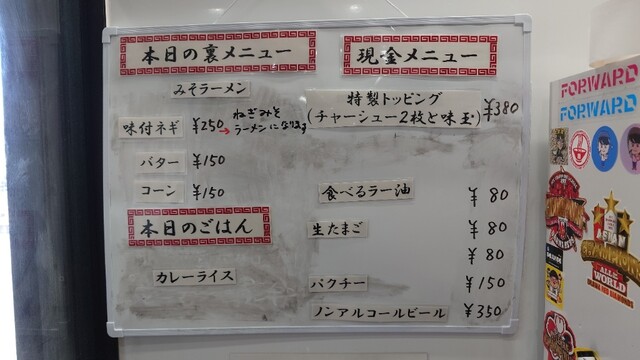 本日の裏メニュー
みそラーメン
味付ネギ ¥250 → ねぎみそ
ラーメンになります
バター ¥150
コーン ¥150
本日のごはん
カレーライス
現金メニュー
特製トッピング
(チャーシュー2枚と味玉) ¥380
食べるラー油 ¥80
生たまご ¥80
¥80
パクチー ¥150
ノンアルコールビール ¥350
FORWARD
FORWARD
ALL
WORLD